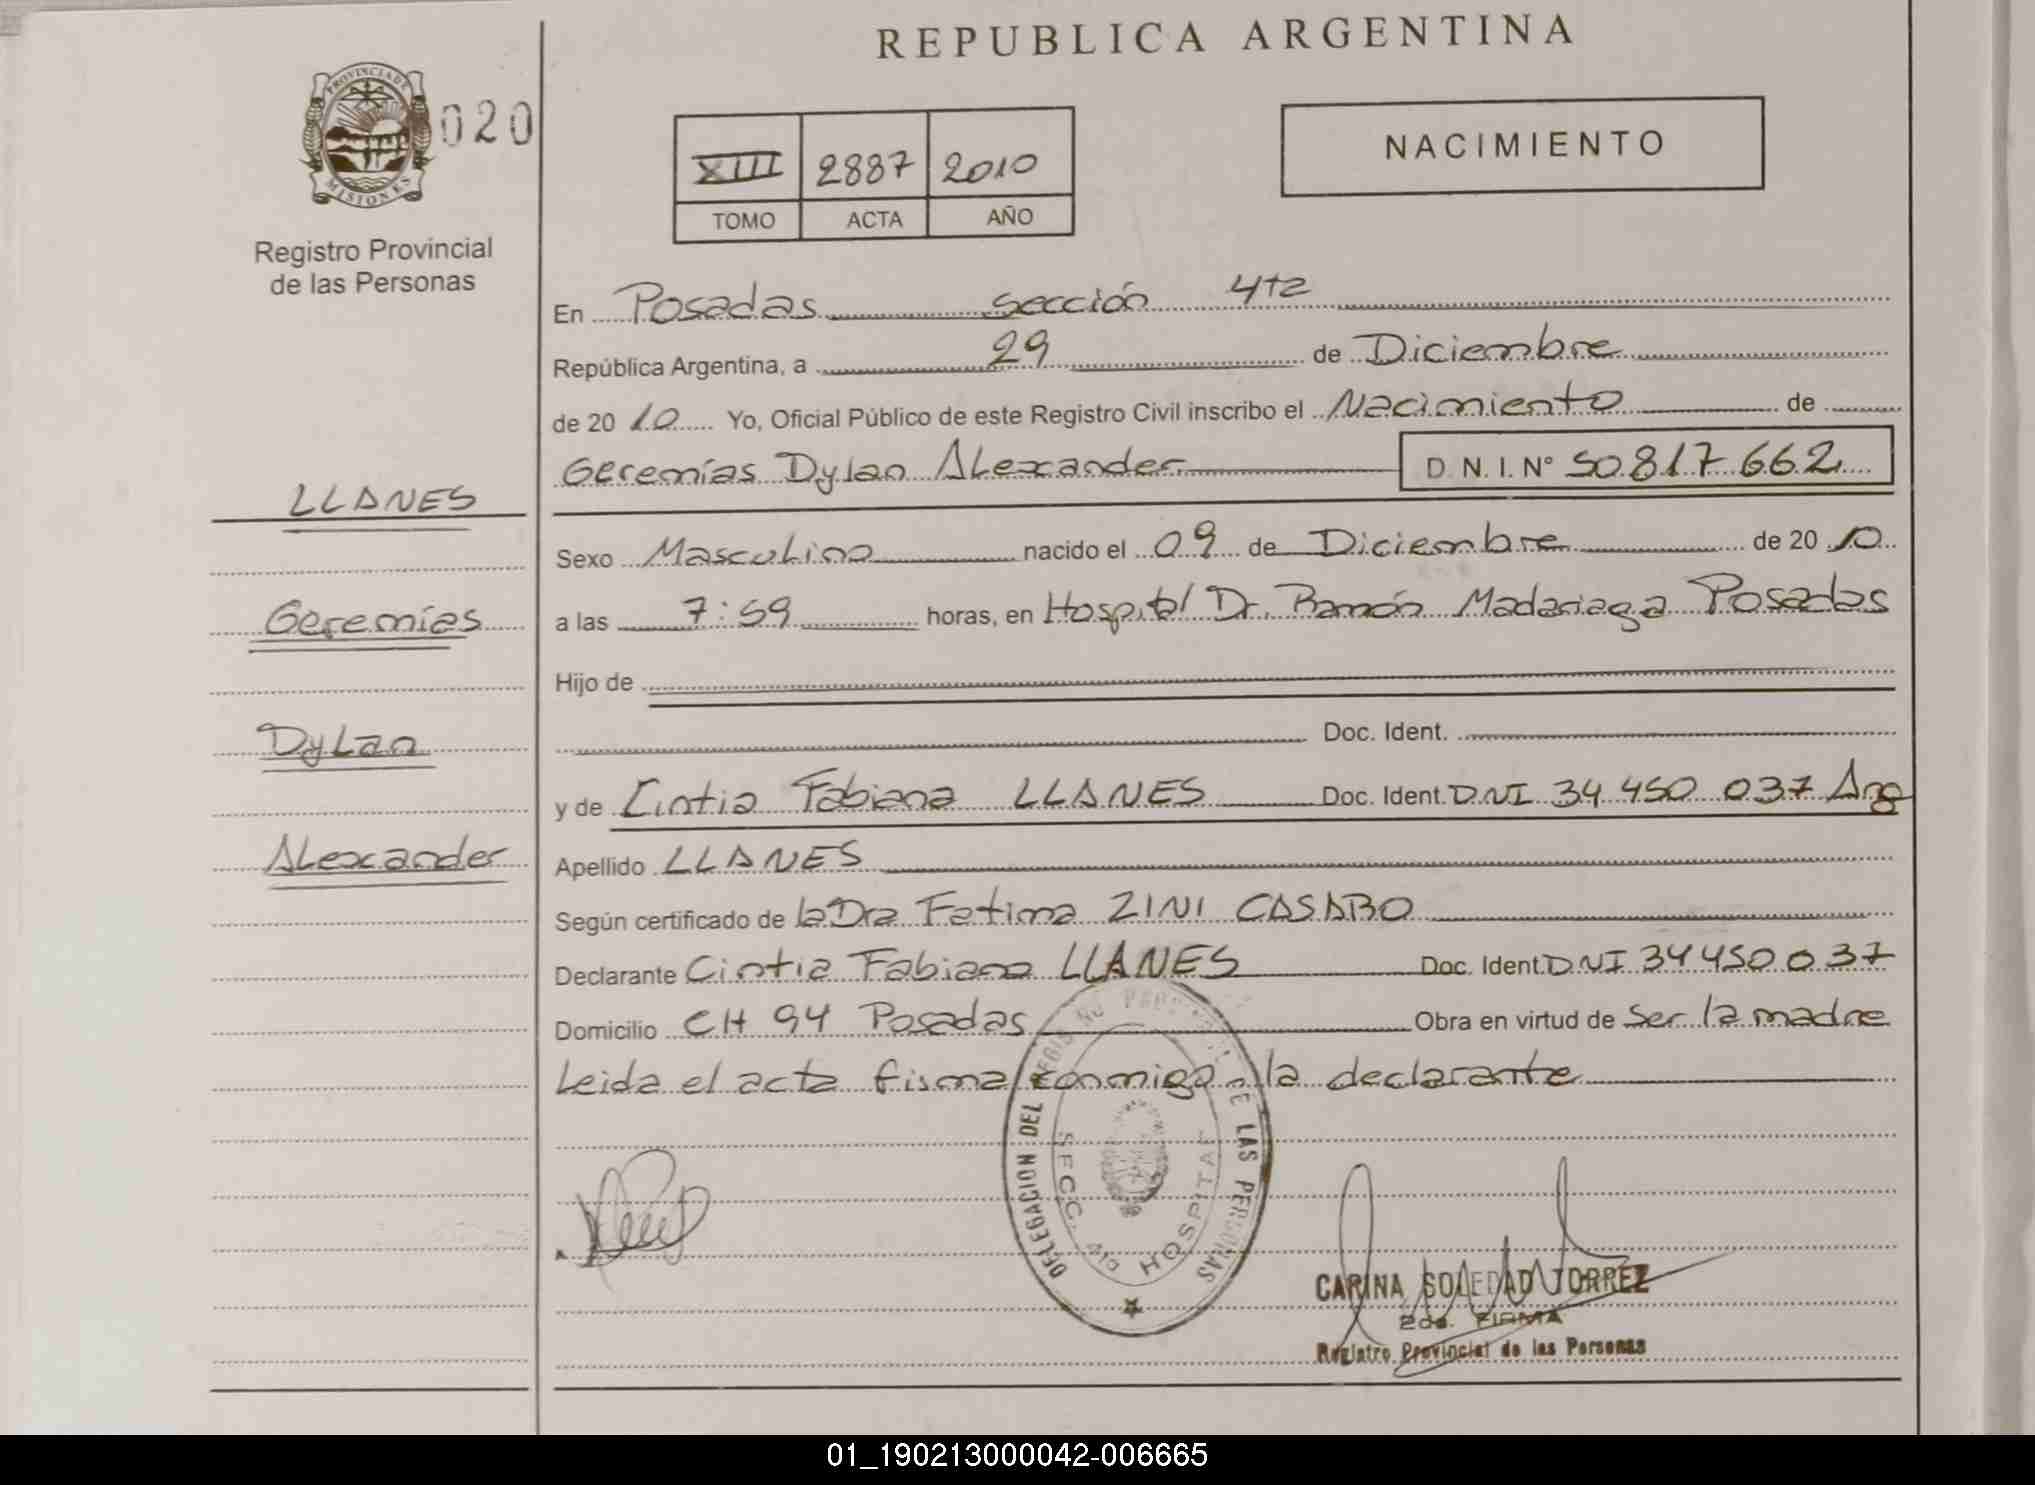 REPUBLICA ARGENTINA
PROVINCIA DE MISIONES
020
Registro Provincial
de las Personas
XIII 2887 2010
TOMO ACTA AÑO
NACIMIENTO
En Posadas sección 4ta
República Argentina, a 29 de Diciembre
de 2010 Yo, Oficial Público de este Registro Civil inscribo el Nacimiento de
Geremías Dylan Alexander D. N. I. N° 50.817.662
LLANES
Geremías
Dylan
Alexander
Sexo Masculino nacido el 09 de Diciembre de 2010
a las 7:59 horas, en Hospital Dr. Ramón Madariaga Posadas
Hijo de
Doc. Ident.
y de Cintia Fabiana LLANES Doc. Ident. DNI 34 450 037 Arg
Apellido LLANES
Según certificado de la Dra Fatima ZINI CASARO
Declarante Cintia Fabiana LLANES Doc. Ident. DNI 34 450 037
Domicilio CH 94 Posadas Obra en virtud de ser la madre
Leida el acta firma conmigo la declarante
DELEGACION DEL REGISTRO PROVINCIAL DE LAS PERSONAS
SECC. 4ta HOSPITAL
CARINA SOLEDAD TORREZ
2da. FIRMA
Registro Provincial de las Personas
01_190213000042-006665